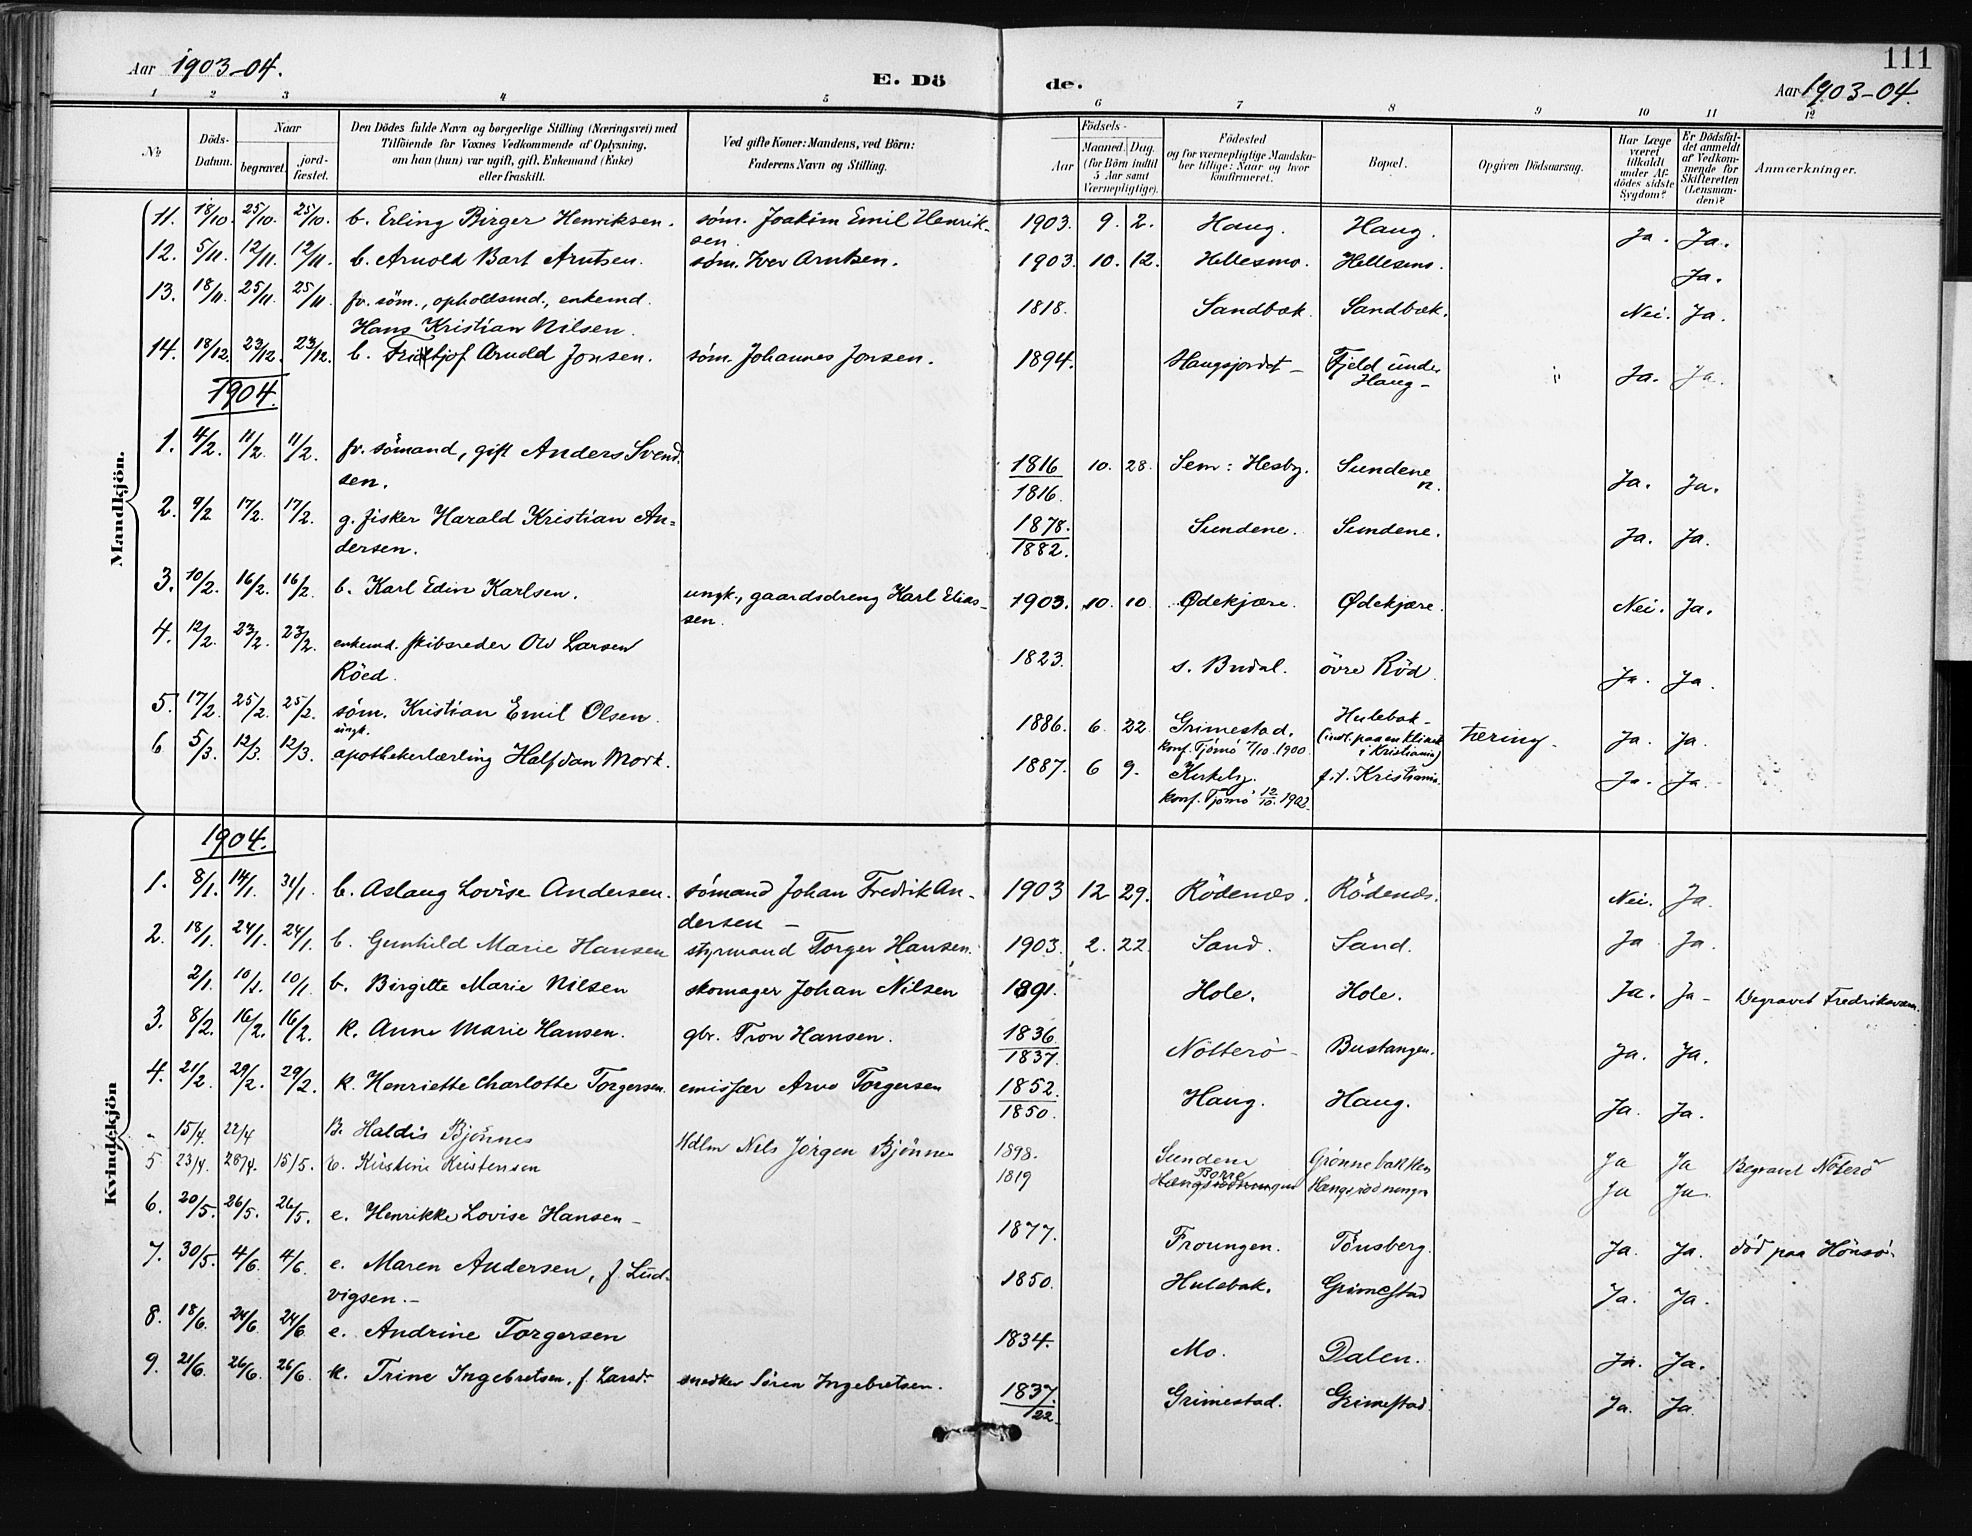 111
Aar 1903-04.
E. Dö de.
Aar 1903-04.
1 2 3 4 5 6 7 8 9 10 11 12
No
Döds-Datum.
Naar
begravet.
jordfæstet.
Den Dödes fulde Navn og borgerlige Stilling (Næringsvei) med
Tilföiende for Voxnes Vedkommende af Oplysning,
om han (hun) var ugift, gift, Enkemand (Enke)
eller fraskilt.
Ved gifte Koner: Mandens, ved Börn:
Faderens Navn og Stilling.
Födsels-
Aar
Maaned. Dag.
(for Börn indtil
5 Aar samt
Værnepligtige).
Födested
og for værnepligtige Mandskaber tillige: Naar og hvor
konfirmeret.
Bopæl.
Opgiven Dödsaarsag.
Har Læge
været
tilkaldt
under Afdödes sidste
Sygdom?
Er Dödsfaldet anmeldt
af Vedkommende for
Skifteretten
(Lensmanden)?
Anmærkninger.
Mandkjön.
11. 18/10. 25/10. 25/10. b. Erling Birger Henriksen. söm. Joakim Emil Henriksen. 1903. 9. 2. Haug. Haug. Ja. Ja.
12. 5/11. 12/11. 12/11. b. Arnold Bart Arntsen. söm. Iver Arntsen. 1903. 10. 12. Hellesmo. Hellesmo. Ja.
13. 18/11. 25/11. 25/11. fv. söm., opholdsmd., enkemd.
Hans Kristian Nilsen. 1818. Sandbæk. Sandbæk. Nei. Ja.
14. 18/12. 23/12. 23/12. b. Fridtjof Arnold Jonsen. söm. Johannes Jonsen. 1894. Haugsjordet - Fjeld under
Haug - " Ja. Ja.
1904.
1. 4/2. 11/2. 11/2. fv. sömand, gift Anders Svendsen. 1816/1816. 10. 28. Sem: Hesby. Sundene n. Ja. Ja.
2. 9/2 17/2. 17/2. g. fisker Harald Kristian Andersen. 1878./1882. Sundene. Sundene. Ja. Ja.
3. 10/2. 16/2. 16/2. b. Karl Edin Karlsen. ungk., gaardsdreng Karl Eliassen. 1903. 10. 10. Ødekjære. Ødekjære. Nei. Ja.
4. 12/2. 23/2. 23/2. enkemd. skibsreder Ole Larsen
Röed. 1823. s. Budal. övre Röd. Ja. Ja.
5. 17/2. 25/2. 25/2. söm. Kristian Emil Olsen. 1886. 6. 22. Grimestad.
konf. Tjömö 7/10. 1900. Hulebak -
(indl. paa en klinik
i Kristiania) tæring. Ja. Ja.
6 5/3. 12/3. 12/3. ungk.
apothekerlærling Halfdan Mork. 1887. 6 9. Kirkeby.
konf. Tjömö 12/10. 1902. f. t. Kristiania. Ja. Ja.
Kvindekjön
1904.
1. 8/1. 14/1. 31/1. b. Aslaug Lovise Andersen. sömand Johan Fredrik Andersen - 1903 12 29. Rödenæs. Rödenæs. Nei. Ja.
2. 18/1. 24/1. 24/1. b. Gunhild Marie Hansen styrmand Torger Hansen. 1903. 2. 22. Sand. Sand. Ja Ja.
2/1. 10/1. 10/1. b. Birgitte Marie Nilsen skomager Johan Nilsen 1891. Hole. Hole. Ja. Ja - Begravet Fredriksværn.
3. 8/2. 16/2. 16/2. k. Anne Marie Hansen. gbr. Tron Hansen. 1836/1837. Nötterö - Bustangen. Ja. Ja.
4. 21/2. 29/2. 29/2. k. Henriette Charlotte Torgersen. emissær Arve Torgersen 1852./1850. Haug. Haug. Ja. Ja.
" 15/4. 22/4 B. Haldis Bjönnes Hdlm Nels Jörgen Bjönnes 1898. Sundene Grönnebakken Ja Ja Begravet Nöterö
5 23/4. 28/4. 15/5. e. Kirstine Kristensen 1819 Borre Ja Ja
6. 20/5. 26/5. 26/5. e. Henrikke Lovise Hansen - 1877. Froungen. Tönsberg. Ja. Ja. död paa Hönsö.
7. 30/5. 4/6. 4/6. e. Maren Andersen, f. Ludvigsen. - 1850. Hulebak. Grimestad Ja. Ja.
8. 18/6. 24/6. 24/6. e. Andrine Torgersen 1834. Mo. Dalen. Ja. Ja.
9. 21/6. 26/6. 26/6. k. Trine Ingebretsen, f. Larsd. snedker Sören Ingebretsen. 1837./22. Grimestad. Grimestad. Ja. Ja.